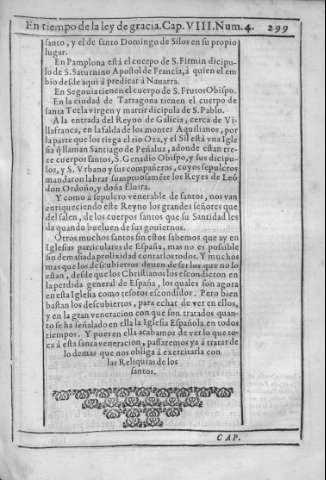 En tiempo de la ley de gracia. Cap. VIII. Num. 4. 299
santo, y el de santo Domingo de Silos en su propio
lugar.
En Pamplona està el cuerpo de S. Firmin dicipu-
lo de S. Saturnino Apostol de Francia, à quien el em
bio desde aqui à predicar à Nauarra.
En Segouia tienen el cuerpo de S. Frutos Obispo.
En la ciudad de Tarragona tienen el cuerpo de
santa Tecla virgen y martir dicipula de S. Pablo.
A la entrada del Reyno de Galicia, cerca de Vi-
llafranca, en la falda de los montes Aquilianos, por
la parte que los riega el rio Oza, y el Sil està vna Igle
sia q̃ llaman Santiago de Peñalua, adonde estan tre-
ze cuerpos santos, S. Genadio Obispo, y sus dicipu-
los, y S. Vrbano y sus compañeros, cuyos sepulcros
mandaron labrar sumptuosamẽte los Reyes de Leõ
don Ordoño, y doña Eluira.
Y como à sepulcro venerable de santos, nos van
enriqueciendo este Reyno los grandes señores que
del salen, de los cuerpos santos que su Santidad les
da quando bueluen de sus gouiernos.
Otros muchos santos sin estos sabemos que ay en
Iglesias particulares de España, mas no es posible
sin demasiada prolixidad contarlos todos. Y muchos
mas que los descubiertos deuen de ser los que no lo
estan, desde que los Christianos los escondieron en
la perdida general de España, los quales son agora
en esta Iglesia como tesoros escondidos. Pero bien
bastan los descubiertos, para echar de ver en ellos,
y en la gran veneracion con que son tratados quan-
to se ha señalado en ella la Iglesia Española en todos
tiempos. Y pues en ella acabamos de ver lo que to-
ca à esta santa veneracion, passaremos ya à tratar de
lo demas que nos obliga à exercitarla con
las Reliquias de los
santos.
CAP.